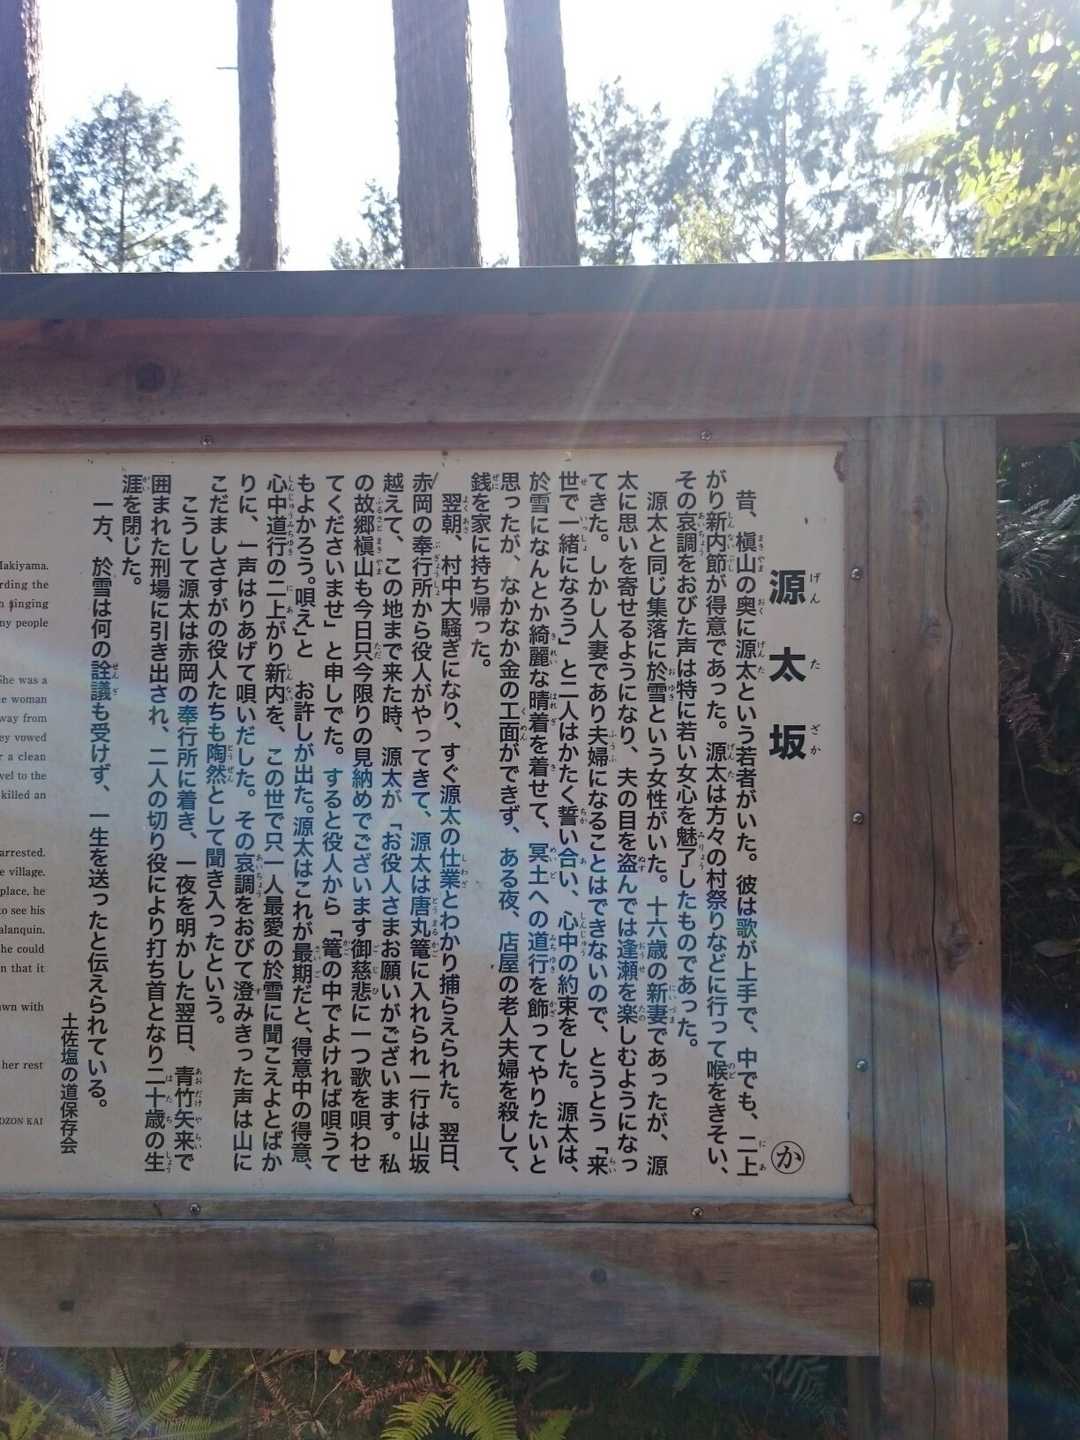 源太坂
げんたざか
か
昔、槇山の奥に源太という若者がいた。彼は歌が上手で、中でも、二上
がり新内節が得意であった。源太は方々の村祭りなどに行って喉をきそい、
その哀調をおびた声は特に若い女心を魅了したものであった。
源太と同じ集落に於雪という女性がいた。十六歳の新妻であったが、源
太に思いを寄せるようになり、夫の目を盗んでは逢瀬を楽しむようになっ
てきた。しかし人妻であり夫婦になることはできないので、とうとう「来
世で一緒になろう」と二人はかたく誓い合い、心中の約束をした。源太は、
於雪になんとか綺麗な晴着を着せて、冥土への道行を飾ってやりたいと
思ったが、なかなか金の工面ができず、ある夜、店屋の老人夫婦を殺して、
銭を家に持ち帰った。
翌朝、村中大騒ぎになり、すぐ源太の仕業とわかり捕らえられた。翌日、
赤岡の奉行所から役人がやってきて、源太は唐丸篭に入れられ一行は山坂
越えて、この地まで来た時、源太が「お役人さまお願いがございます。私
の故郷槇山も今日只今限りの見納めでございます御慈悲に一つ歌を唄わせ
てくださいませ」と申しでた。すると役人から「篭の中でよければ唄うて
もよかろう。唄え」と お許しが出た。源太はこれが最期だと、得意中の得意、
心中道行の二上がり新内を、この世で只一人最愛の於雪に聞こえよとばか
りに、一声はりあげて唄いだした。その哀調をおびて澄みきった声は山に
こだましさすがの役人たちも陶然として聞き入ったという。
こうして源太は赤岡の奉行所に着き、一夜を明かした翌日、青竹矢来で
囲まれた刑場に引き出され、二人の切り役により打ち首となり二十歳の生
涯を閉じた。
一方、於雪は何の詮議も受けず、一生を送ったと伝えられている。
土佐塩の道保存会
Makiyama.
rding the
h singing
ny people
She was a
e woman
way from
ey vowed
r a clean
vel to the
killed an
arrested.
e village.
place, he
to see his
alanquin.
he could
n that it
wn with
her rest
OZON KAI